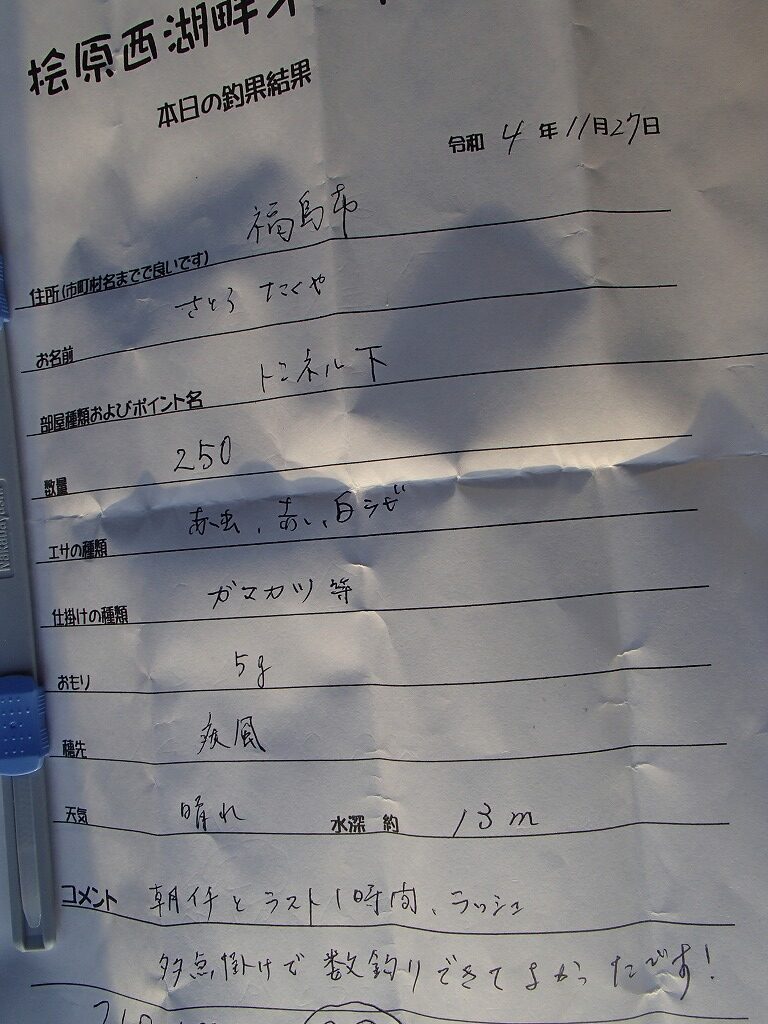 桧原西湖畔オ
本日の釣果結果
令和 4 年 11月27日
住所(市町村名までで良いです) 福島市
お名前 さとう たくや
部屋種類およびポイント名 トンネル下
数量 250
エサの種類 あか虫、赤い、白ラビ
仕掛けの種類 ガマカツ等
おもり 5g
穂先 疾風
天気 晴れ 水深 約 13m
コメント 朝イチとラスト1時間、ラッシュ
多点掛けで数釣りできてよかったです!
Nakabayashi